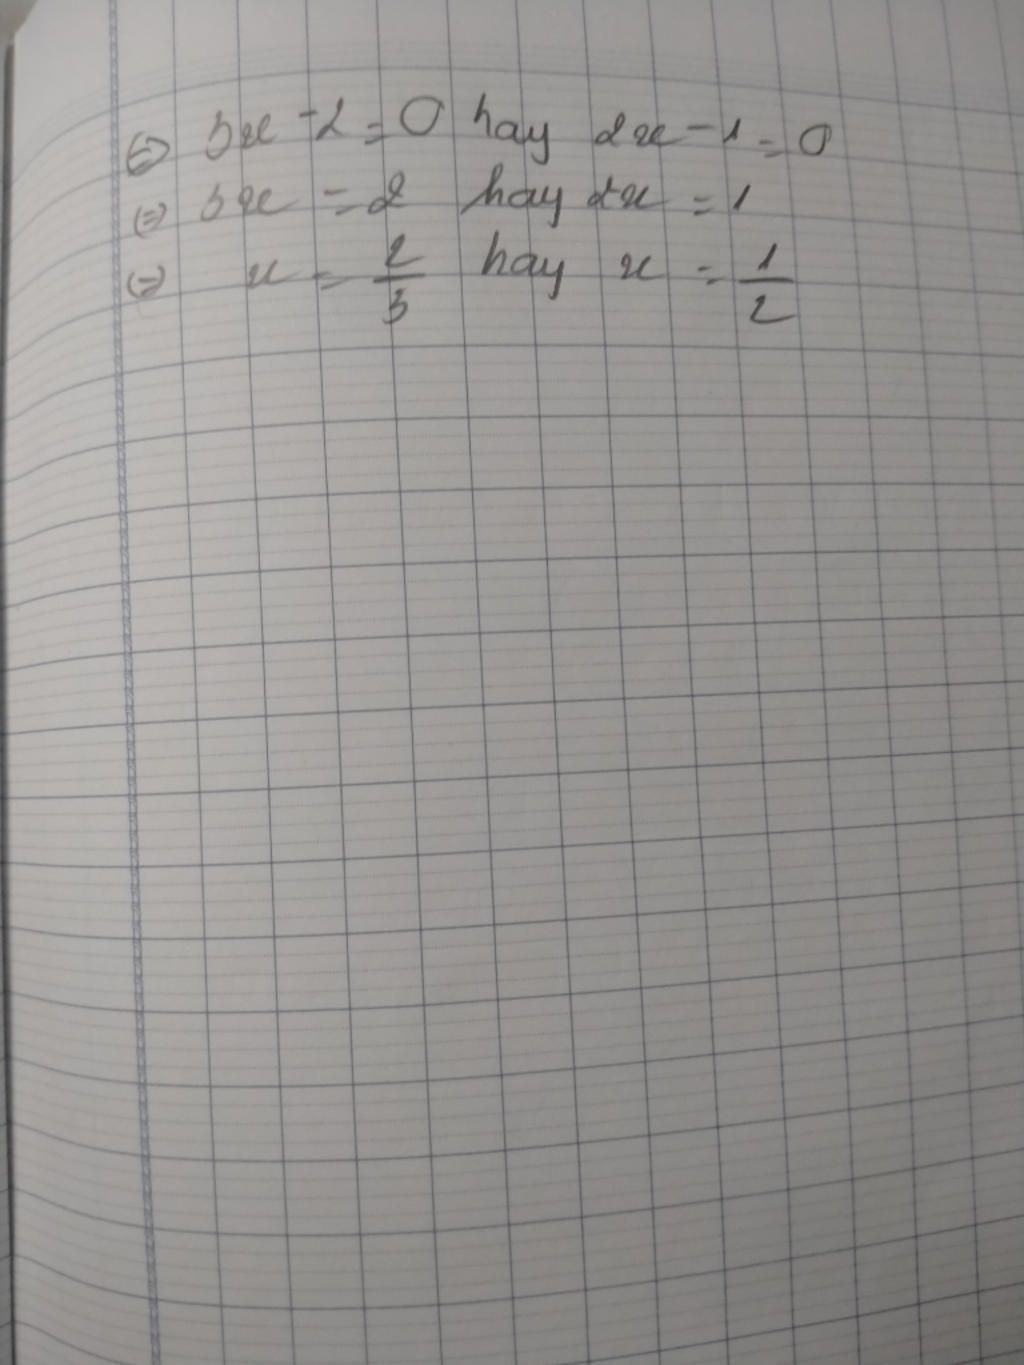 ⇔ 3x - 2 = 0 hay 2x - 1 = 0
⇔ 3x = 2 hay 2x = 1
⇔ x = 2/3 hay x = 1/2